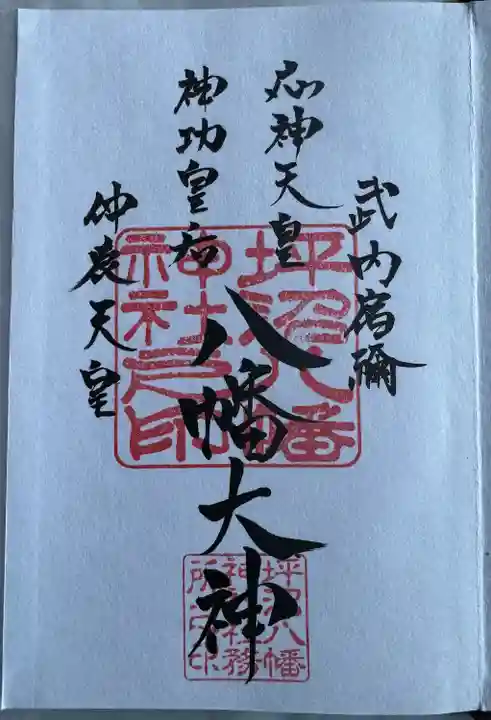 武内宿彌
応神天皇
八幡大神
神功皇后
仲哀天皇
坪沼八幡
神社之印
坪沼八幡
神社社務
所之印